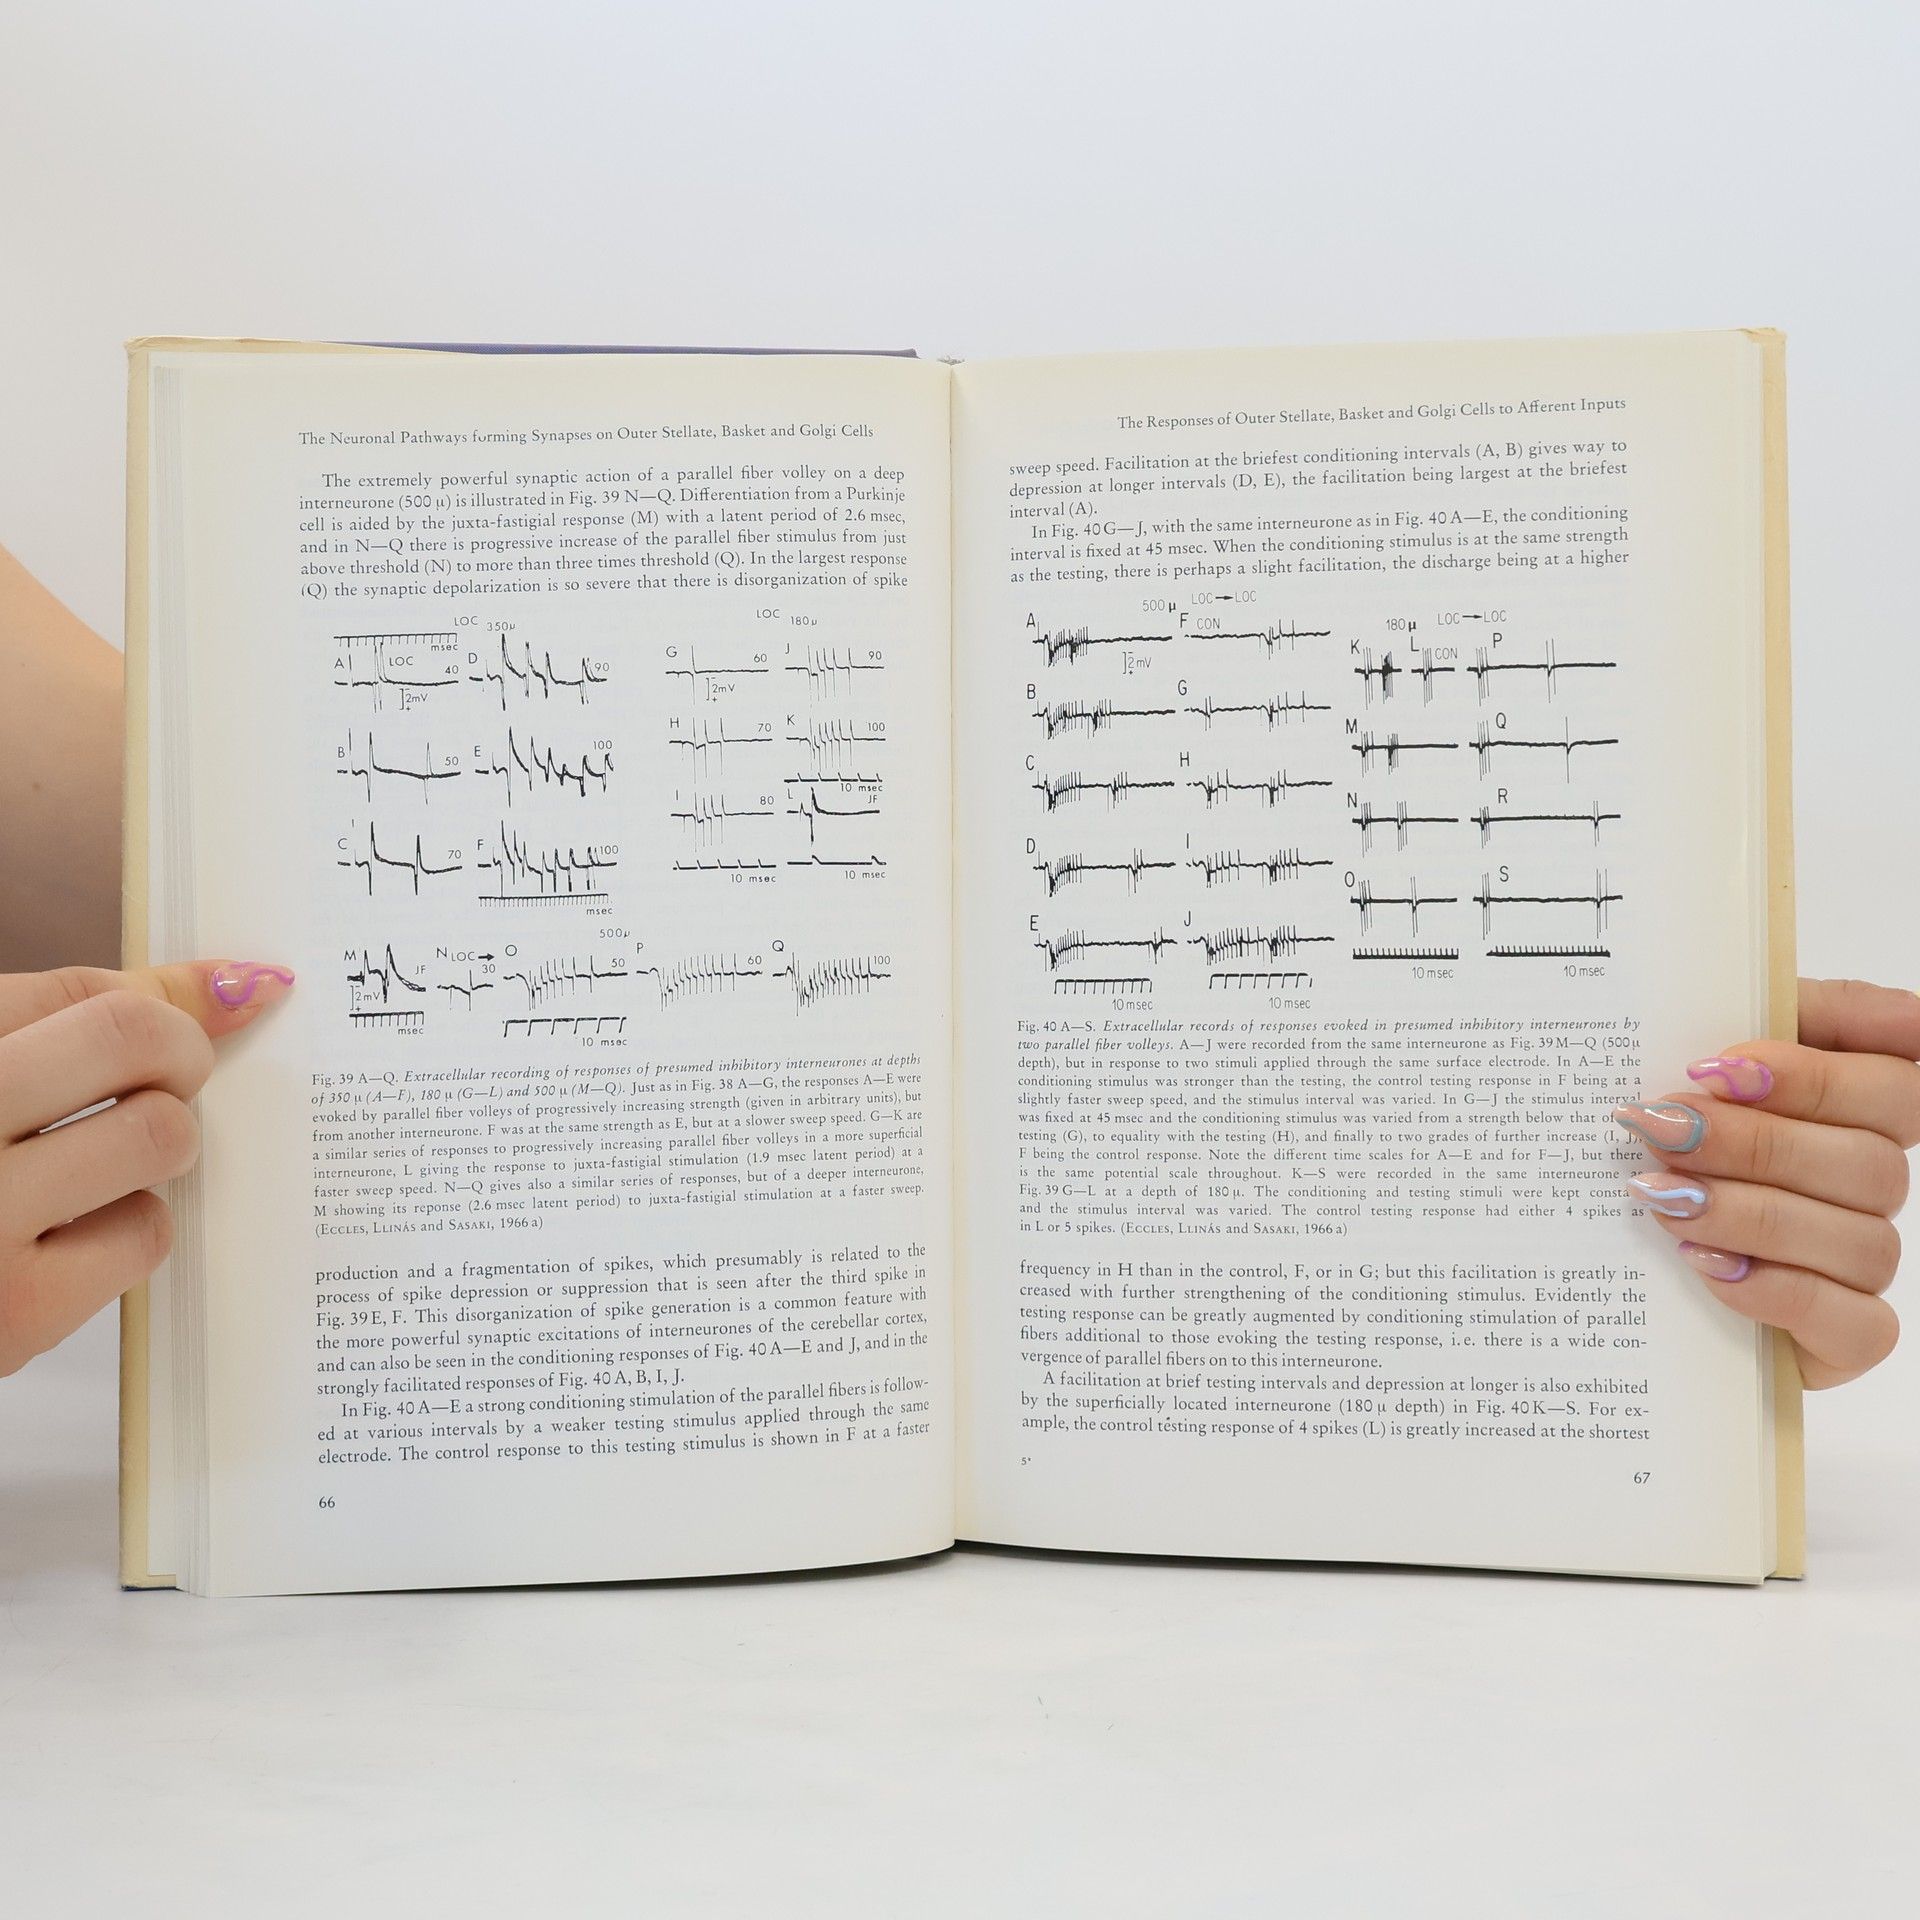 The Neuronal Pathways forming Synapses on Outer Stellate, Basket and Golgi Cells
The extremely powerful synaptic action of a parallel fiber volley on a deep
interneurone (500 µ) is illustrated in Fig. 39 N—Q. Differentiation from a Purkinje
cell is aided by the juxta-fastigial response (M) with a latent period of 2.6 msec,
and in N—Q there is progressive increase of the parallel fiber stimulus from just
above threshold (N) to more than three times threshold (Q). In the largest response
(Q) the synaptic depolarization is so severe that there is disorganization of spike
LOC 350µ
LOC 180µ
msec
A LOC 40
2mV
D 90
G 60
2mV
J 90
B 50
E 100
H 70
K 100
10 msec
C 70
F 100
msec
I 80
L JF
10 msec
10 msec
500µ
M JF
2mV
msec
N LOC→ 30
O 50
10 msec
P 60
Q 100
Fig. 39 A—Q. Extracellular recording of responses of presumed inhibitory interneurones at depths
of 350 µ (A—F), 180 µ (G—L) and 500 µ (M—Q). Just as in Fig. 38 A—G, the responses A—E were
evoked by parallel fiber volleys of progressively increasing strength (given in arbitrary units), but
from another interneurone. F was at the same strength as E, but at a slower sweep speed. G—K are
a similar series of responses to progressively increasing parallel fiber volleys in a more superficial
interneurone, L giving the response to juxta-fastigial stimulation (1.9 msec latent period) at a
faster sweep speed. N—Q gives also a similar series of responses, but of a deeper interneurone,
M showing its reponse (2.6 msec latent period) to juxta-fastigial stimulation at a faster sweep.
(ECCLES, LLINÁS and SASAKI, 1966 a)
production and a fragmentation of spikes, which presumably is related to the
process of spike depression or suppression that is seen after the third spike in
Fig. 39 E, F. This disorganization of spike generation is a common feature with
the more powerful synaptic excitations of interneurones of the cerebellar cortex,
and can also be seen in the conditioning responses of Fig. 40 A—E and J, and in the
strongly facilitated responses of Fig. 40 A, B, I, J.
In Fig. 40 A—E a strong conditioning stimulation of the parallel fibers is follow-
ed at various intervals by a weaker testing stimulus applied through the same
electrode. The control response to this testing stimulus is shown in F at a faster
66
The Responses of Outer Stellate, Basket and Golgi Cells to Afferent Inputs
sweep speed. Facilitation at the briefest conditioning intervals (A, B) gives way to
depression at longer intervals (D, E), the facilitation being largest at the briefest
interval (A).
In Fig. 40 G—J, with the same interneurone as in Fig. 40 A—E, the conditioning
interval is fixed at 45 msec. When the conditioning stimulus is at the same strength
as the testing, there is perhaps a slight facilitation, the discharge being at a higher
500 µ LOC→LOC
180 µ LOC→LOC
A
2mV
F CON
K
L CON
P
B
G
M
Q
C
H
N
R
D
I
O
S
E
J
10 msec
10 msec
10 msec
10 msec
Fig. 40 A—S. Extracellular records of responses evoked in presumed inhibitory interneurones by
two parallel fiber volleys. A—J were recorded from the same interneurone as Fig. 39 M—Q (500 µ
depth), but in response to two stimuli applied through the same surface electrode. In A—E the
conditioning stimulus was stronger than the testing, the control testing response in F being at a
slightly faster sweep speed, and the stimulus interval was varied. In G—J the stimulus interval
was fixed at 45 msec and the conditioning stimulus was varied from a strength below that of
testing (G), to equality with the testing (H), and finally to two grades of further increase (I, J),
F being the control response. Note the different time scales for A—E and for F—J, but there
is the same potential scale throughout. K—S were recorded in the same interneurone as
Fig. 39 G—L at a depth of 180 µ. The conditioning and testing stimuli were kept
and the stimulus interval was varied. The control testing response had either 4 spikes as
in L or 5 spikes. (ECCLES, LLINÁS and SASAKI, 1966 a)
frequency in H than in the control, F, or in G; but this facilitation is greatly in-
creased with further strengthening of the conditioning stimulus. Evidently the
testing response can be greatly augmented by conditioning stimulation of parallel
fibers additional to those evoking the testing response, i.e. there is a wide con-
vergence of parallel fibers on to this interneurone.
A facilitation at brief testing intervals and depression at longer is also exhibited
by the superficially located interneurone (180 µ depth) in Fig. 40 K—S. For ex-
ample, the control testing response of 4 spikes (L) is greatly increased at the shortest
5*
67